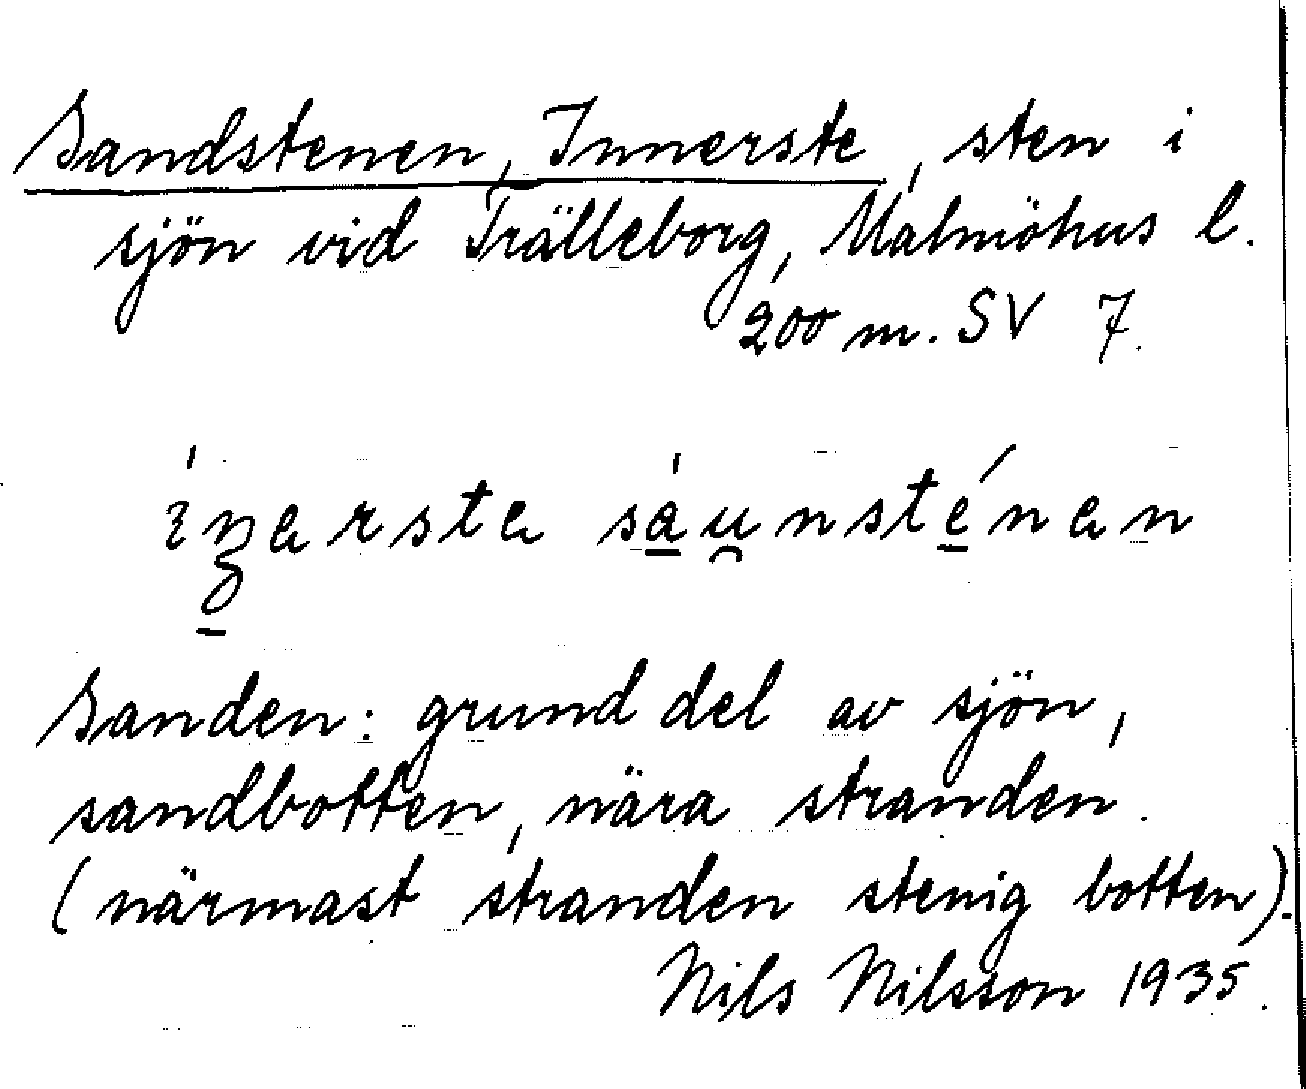 Sandstenen, Innerste, sten i
sjön vid Trälleborg, Malmöhus l.
200 m. SV 7.
sáu̯nsténan
Sanden: grund del av sjön,
sandbotten, nära stranden.
(närmast stranden stenig botten).
Nils Nilsson 1935.